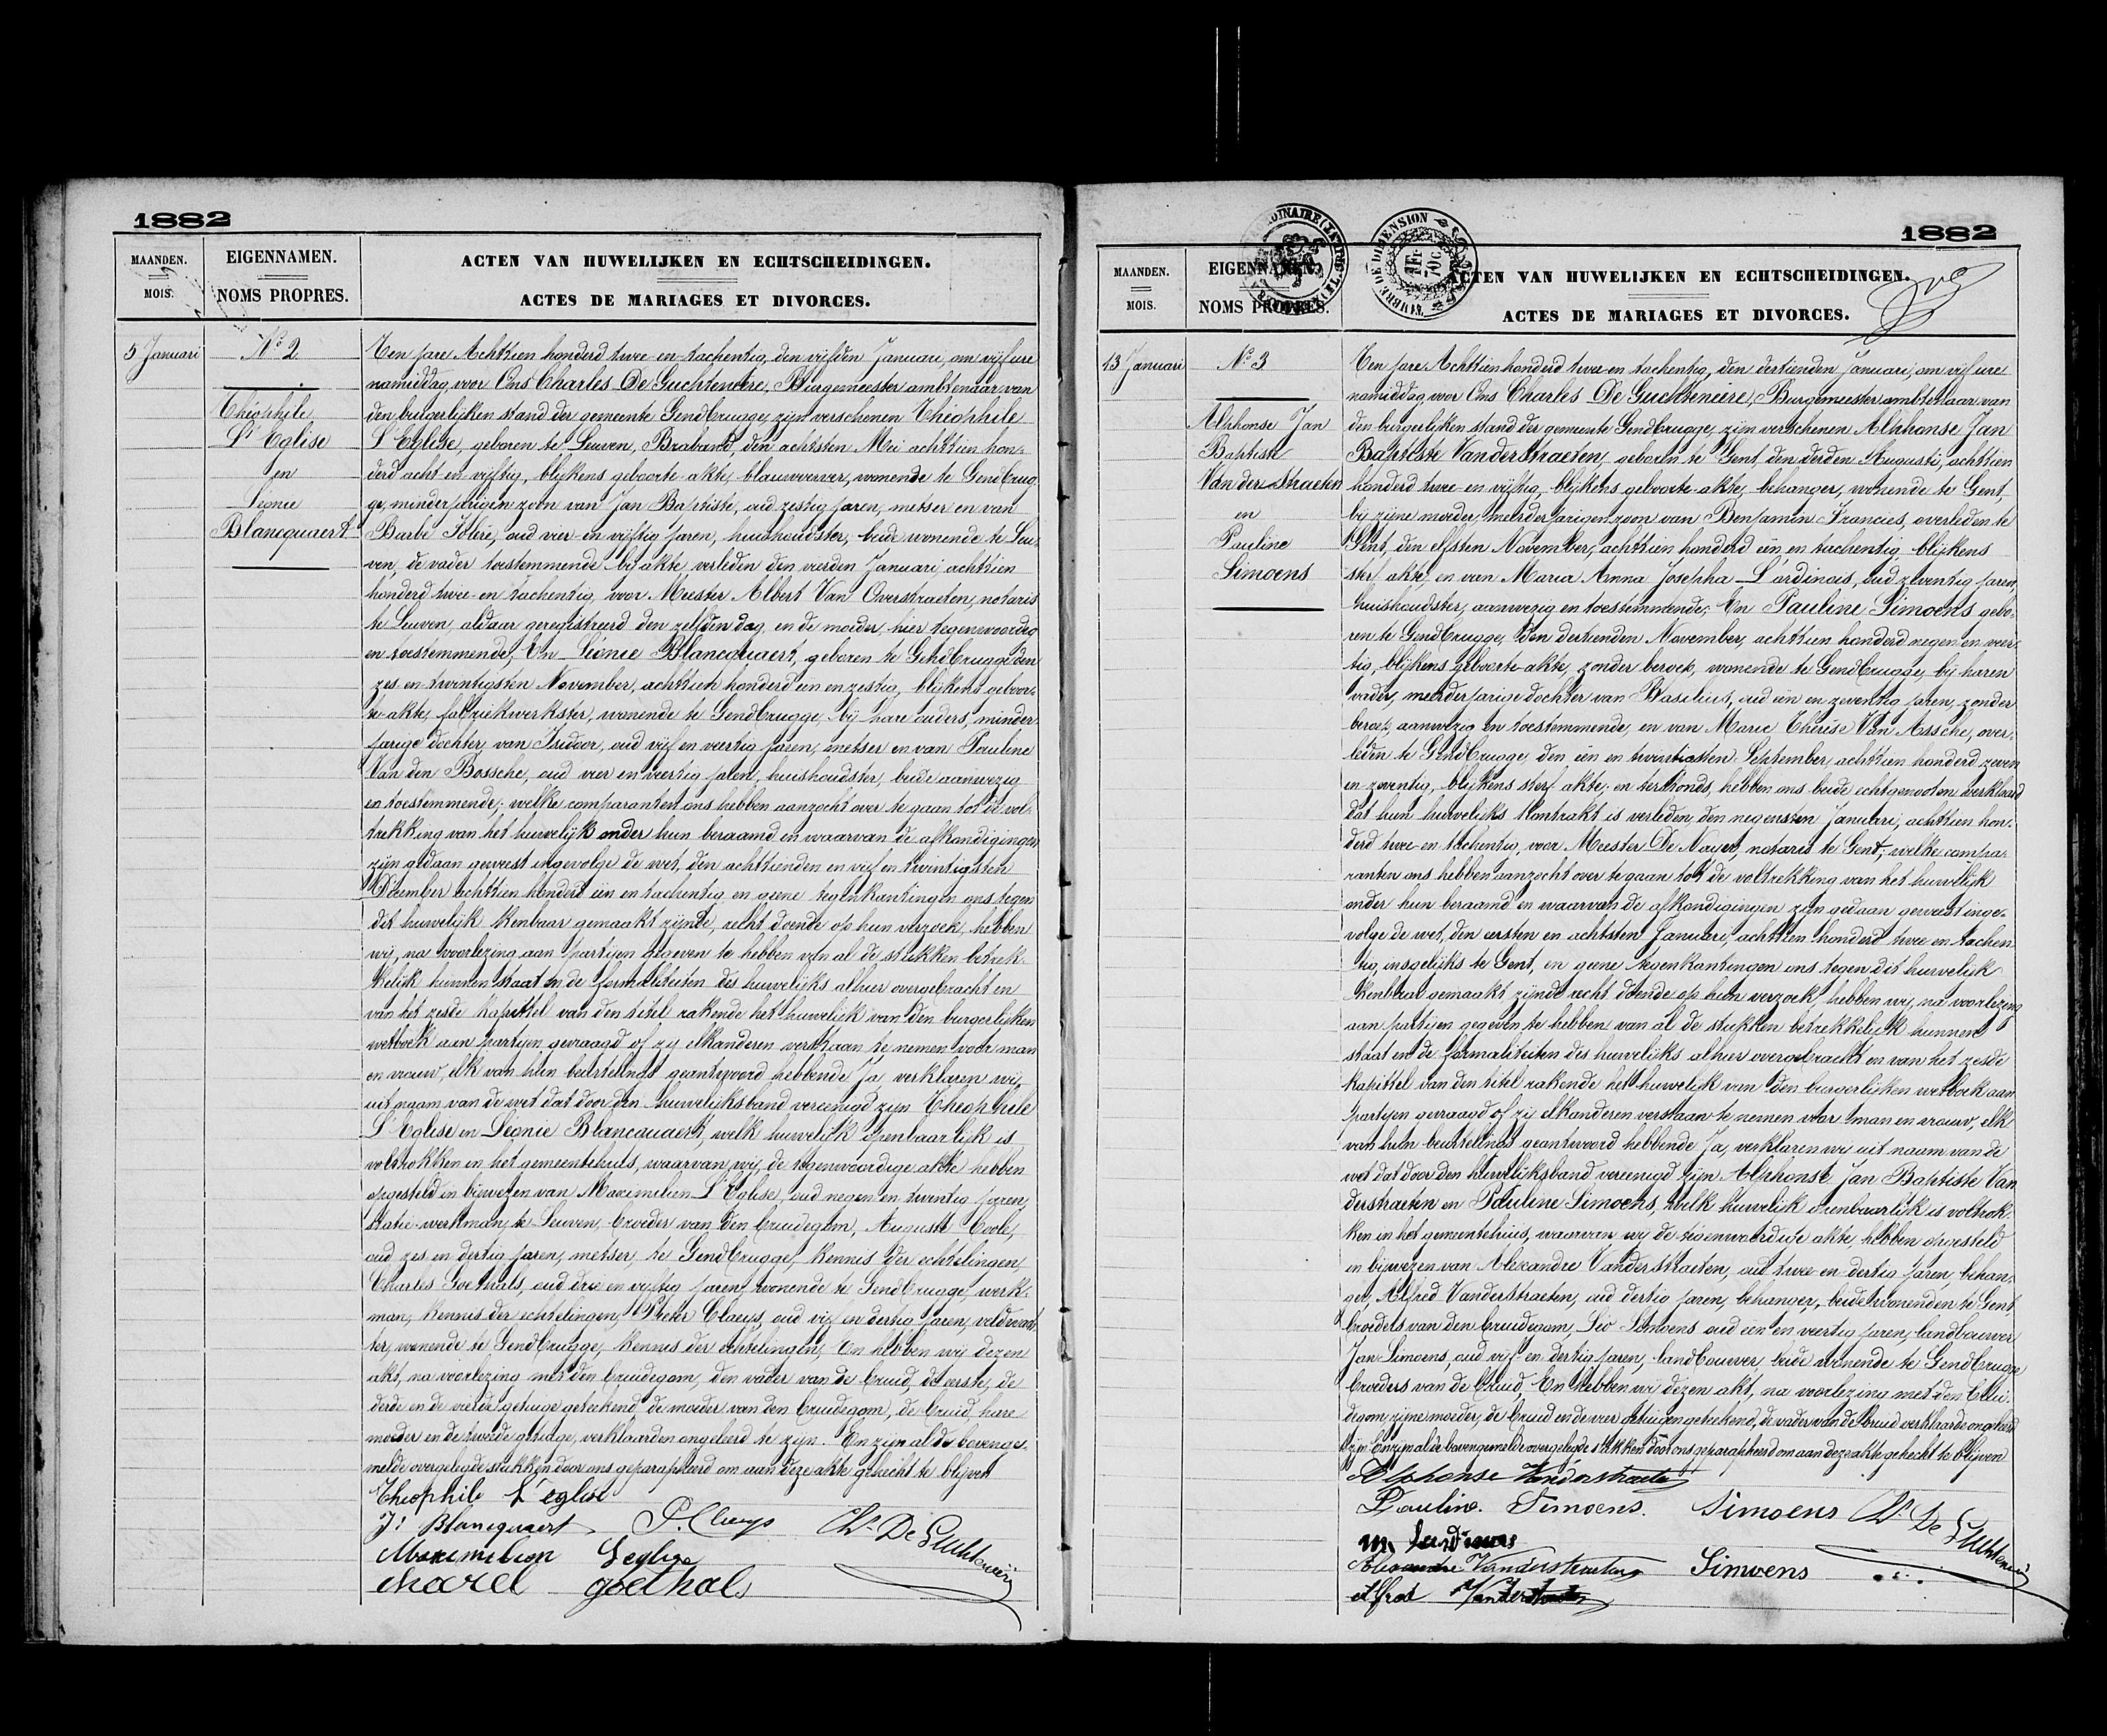 1882
MAANDEN.
MOIS.
EIGENNAMEN.
NOMS PROPRES.
ACTEN VAN HUWELIJKEN EN ECHTSCHEIDINGEN.
ACTES DE MARIAGES ET DIVORCES.
5 Januari
No 2
Théophile
L'Eglise
en
Léonie
Blancquaert
Ten jare Achttien honderd twee-en-tachentig, den vijfden Januari, om vijf ure
namiddag, voor Ons Charles De Guchteneire, Burgemeester ambtenaar van
den burgerlijken stand der gemeente Gendbrugge, zijn verschenen Théophile
L'Eglise, geboren te Leuven, Braband, den achtsten Mei achttien hon-
derd acht en vijftig, blijkens geboorte akte, blauwverver, wonende te Gendbrug
ge, minderjarigen zoon van Jan Baptiste, oud zestig jaren, metser en van
Barbe, oud vier en vijftig jaren, huishoudster, beide wonende te Leu-
ven, de vader toestemmende bij akte verleden den vierden Januari achttien
honderd twee-en-tachentig, voor Meester Albert Van Overstraeten, notaris
te Leuven, aldaar geregistreerd den zelfden dag, en de moeder, hier tegenwoordig
en toestemmende, En Léonie Blancquaert, geboren te Gendbrugge den
zes-en-twintigsten November, achttien honderd een en zestig, blijkens geboor-
te akte, fabriekwerkster, wonende te Gendbrugge, bij hare ouders, minder-
jarige dochter van Isidoor, oud vijf en veertig jaren, metser en van Pauline
Van den Bossche, oud vier en veertig jaren, huishoudster, beide aanwezig
en toestemmende; welke comparanten ons hebben aanzocht over te gaan tot de vol-
trekking van het huwelijk onder hun beraamd en waarvan de afkondigingen
zijn gedaan geweest ingevolge de wet, den achttienden en vijf en twintigsten
December achttien honderd een en tachentig en geene tegenkantingen ons tegen
dit huwelijk kenbaar gemaakt zijnde, recht doende op hun verzoek, hebben
wij, na voorlezing aan partijen gegeven te hebben van al de stukken betrek-
kelijk hunnen staat en de formaliteiten des huwelijks alhier overgebracht en
van het zesde kapittel van den titel rakende het huwelijk van den burgerlijken
wetboek aan partijen gevraagd of zij elkanderen verstaan te nemen voor man
en vrouw, elk van hen beurtelings geantwoord hebbende Ja, verklaren wij,
uit naam van de wet dat door den huwelijksband vereenigd zijn Theophile
L'Eglise en Leonie Blancquaert, welk huwelijk openbaarlijk is
voltrokken in het gemeentehuis, waarvan wij, de tegenwoordige akte hebben
opgesteld in bijwezen van Maximilien L'Eglise, oud negen en twintig jaren,
statie-werkman, te Leuven, broeder van den bruidegom, August Cool,
oud zes en dertig jaren, metser, te Gendbrugge, kennis der echtelingen,
Charles Goethals, oud drie en vijftig jaren, wonende te Gendbrugge, werk-
man, kennis der echtelingen, Pieter Claeys, oud vijf en dertig jaren, veldwach-
ter, wonende te Gendbrugge, kennis der echtelingen, En hebben wij dezen
akt, na voorlezing met den bruidegom, den vader van de bruid, de eerste, de
derde en de vierde getuige geteekend, de moeder van den bruidegom, de bruid, hare
moeder en de tweede getuige, verklaarden ongeleerd te zijn. En zijn al de bovenge-
melde overgelegde stukken door ons geparapheerd om aan deze akte gehecht te blijven
Theophile L'eglise
Jr Blancquaert P. Claeys Chs De Guchteneire
Maximilien Leglise
charel goethals
1882
MAANDEN.
MOIS.
EIGENNAMEN.
NOMS PROPRES.
TIMBRE DE DIMENSION
ACTEN VAN HUWELIJKEN EN ECHTSCHEIDINGEN.
ACTES DE MARIAGES ET DIVORCES.
13 Januari
No 3
Alphonse Jan
Baptiste
Van der Straeten
en
Pauline
Simoens
Ten jare Achttien honderd twee-en-tachentig, den dertienden Januari, om vijf ure
namiddag, voor Ons Charles De Guchteneire, Burgemeester ambtenaar van
den burgerlijken stand der gemeente Gendbrugge, zijn verschenen Alphonse Jan
Baptiste Vanderstraeten, geboren te Gent, den derden Augusti, achttien
honderd twee-en vijftig, blijkens geboorte-akte, behanger, wonende te Gent,
bij zijne moeder, meerderjarigen zoon van Benjamin Francies, overleden te
Gent, den elfsten November, achttien honderd een en tachentig, blijkens
sterf akte, en van Maria Anna Josepha Lardinois, oud zeventig jaren,
huishoudster, aanwezig en toestemmende; En Pauline Simoens, gebo-
ren te Gendbrugge, den dertienden November, achttien honderd negen en veer-
tig, blijkens geboorte-akte, zonder beroep, wonende te Gendbrugge, bij haren
vader, meerderjarige dochter van Basilius, oud een en zeventig jaren, zonder
beroep, aanwezig en toestemmende, en van Marie Thérèse Van Assche, over-
leden te Gendbrugge, den een en twintigsten September, achttien honderd zeven
en zeventig, blijkens sterf akte; en terstonds, hebben ons beide echtgenooten verklaard
dat hun huwelijks kontrakt is verleden, den negensten Januari, achttien hon-
derd twee-en tachentig, voor Meester De Nayer, notaris te Gent; welke compa-
ranten ons hebben aanzocht over te gaan tot de voltrekking van het huwelijk
onder hun beraamd en waarvan de afkondigingen zijn gedaan geweest inge-
volge de wet, den eersten en achtsten Januari, achttien honderd twee en tachen-
tig, insgelijks te Gent, en geene tegenkantingen ons tegen dit huwelijk
kenbaar gemaakt zijnde, recht doende op hun verzoek, hebben wij, na voorlezing
aan partijen gegeven te hebben van al de stukken betrekkelijk hunnen
staat en de formaliteiten des huwelijks alhier overgebracht en van het zesde
kapittel van den titel rakende het huwelijk van den burgerlijken wetboek aan
partijen gevraagd of zij elkanderen verstaan te nemen voor man en vrouw, elk
van hun beurtelings geantwoord hebbende Ja, verklaren wij uit naam van de
wet dat door den huwelijksband vereenigd zijn Alphonse Jan Baptiste Van
derstraeten en Pauline Simoens, welk huwelijk openbaarlijk is voltrok-
ken in het gemeentehuis, waarvan wij de tegenwoordige akte hebben opgesteld
in bijwezen van Alexandre Vanderstraeten, oud twee-en-dertig jaren, behan-
ger, Alfred Vanderstraeten, oud dertig jaren, behanger, beide wonenden te Gent
broeders van den bruidegom, Livo Simoens oud een en veertig jaren, landbouwer
Jan Simoens, oud vijf en dertig jaren, landbouwer, beide wonende te Gendbrugge
broeders van de bruid, En hebben wij dezen akt, na voorlezing met den brui-
degom, zijne moeder, de bruid en de vier getuigen geteekend, de vader van de bruid verklaarde ongeleerd
te zijn. En zijn al de bovengemelde overgelegde stukken door ons geparapheerd om aan deze akte gehecht te blijven
Alphonse Vanderstraeten
Pauline. Simoens. Simoens Chs De Guchteneire
m Lardinois
Alexandre Vanderstraeten Simoens
Alfred Vanderstraeten